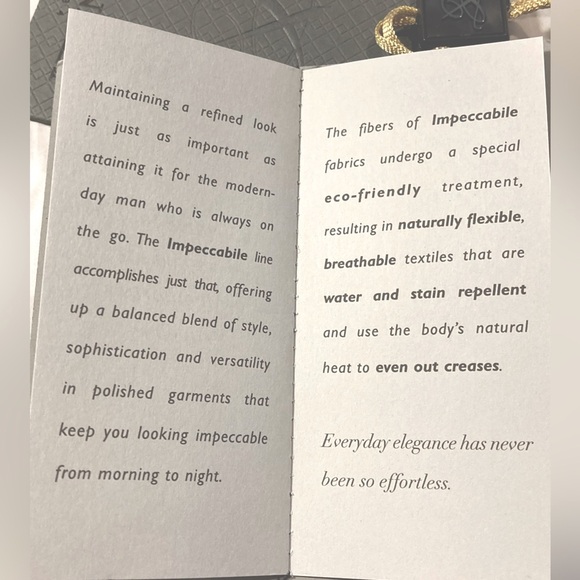 Maintaining a refined look
is just as important as
attaining it for the modern-
day man who is always on
the go. The Impeccabile line
accomplishes just that, offering
up a balanced blend of style,
sophistication and versatility
in polished garments that
keep you looking impeccable
from morning to night.
The fibers of Impeccabile
fabrics undergo a special
eco-friendly treatment,
resulting in naturally flexible,
breathable textiles that are
water and stain repellent
and use the body's natural
heat to even out creases.
Everyday elegance has never
been so effortless.